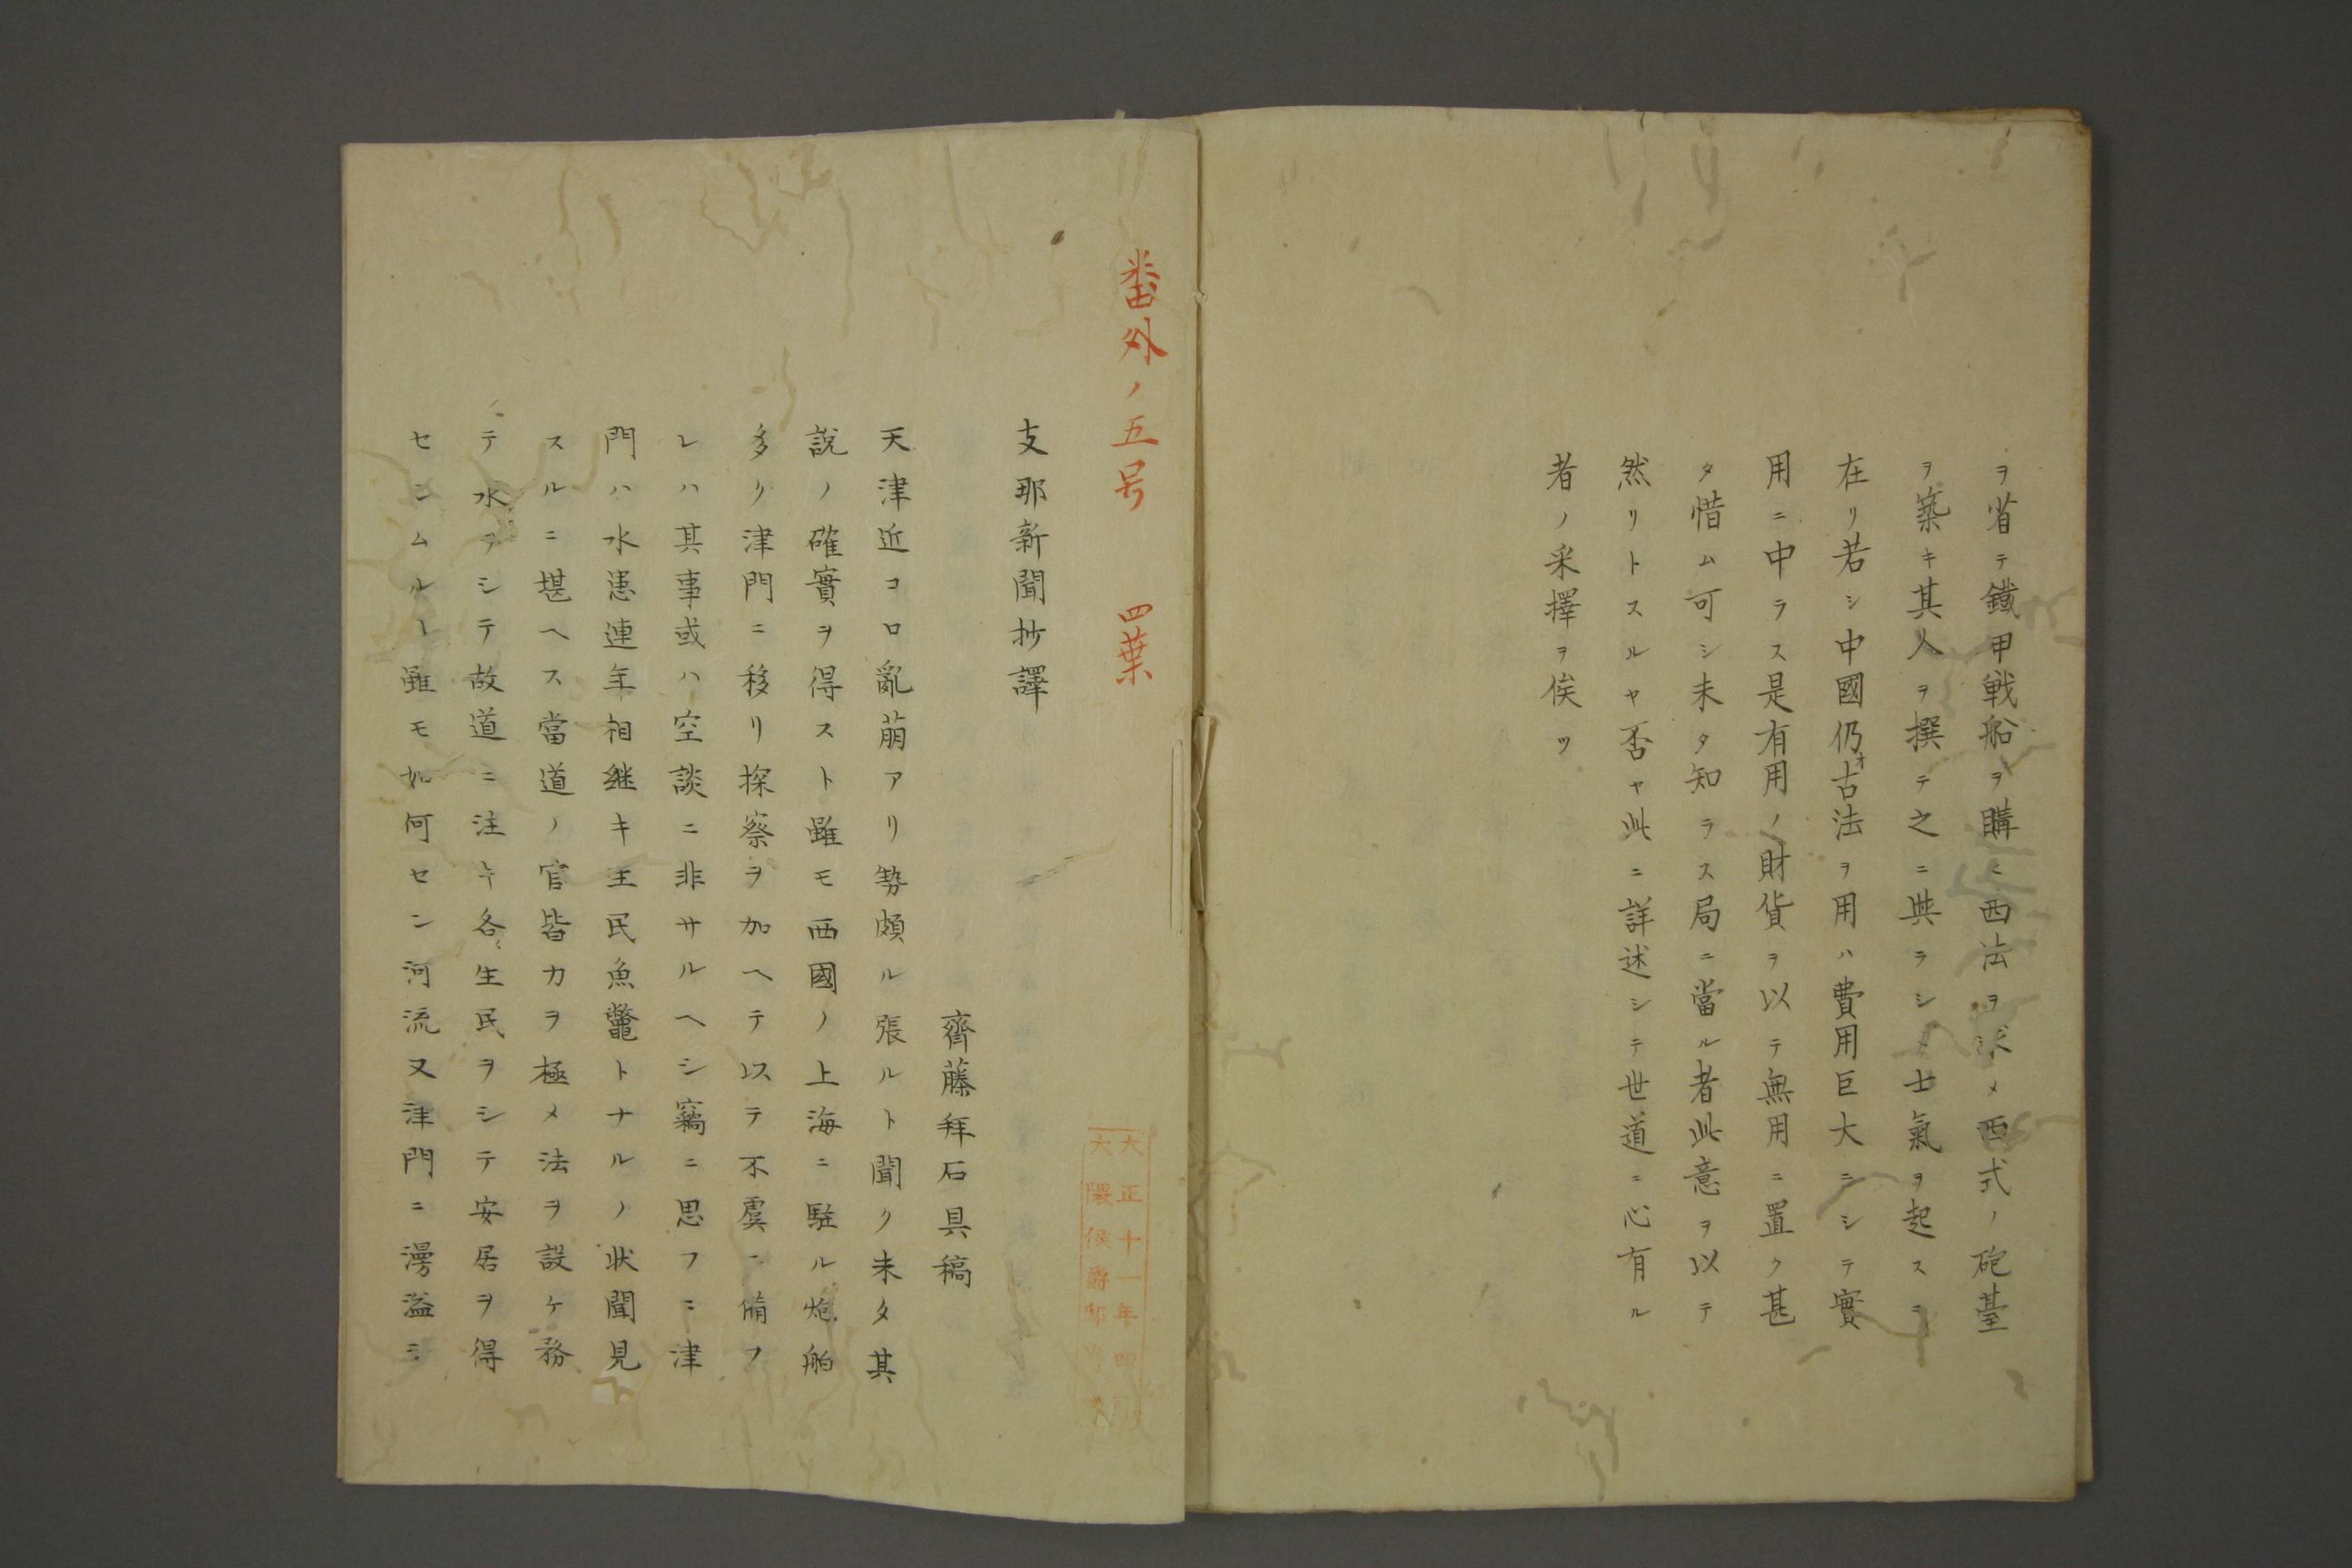 ヲ省テ鐵甲戦船ヲ購ヒ西法ヲ求メ西式ノ砲臺
ヲ築キ其人ヲ撰テ之ニ與ラシメ士氣ヲ起スニ
在リ若シ中國仍オ古法ヲ用ハ費用巨大ニシテ實
用ニ中ラス是有用ノ財貨ヲ以テ無用ニ置ク甚
タ惜ム可シ未タ知ラス局ニ當ル者此意ヲ以テ
然リトスルヤ否ヤ此ニ詳述シテ世道ニ心有ル
者ノ采擇ヲ俟ツ
番外ノ五号 四葉
大正十一年
大隈侯爵邸寄贈
支那新聞抄譯
齊藤拜石具稿
天津近コロ亂萠アリ勢頗ル張ルト聞ク未タ其
說ノ確實ヲ得スト雖モ西國ノ上海ニ駐ル炮舶
多ク津門ニ移リ探察ヲ加ヘテ以テ不虞ニ備フ
レハ其事或ハ空談ニ非サルヘシ竊ニ思フニ津
門ハ水患連年相継キ生民魚鼈トナルノ状聞見
スルニ堪ヘス當道ノ官皆力ヲ極メ法ヲ設ケ務
テ水ヲシテ故道ニ注キ各〻生民ヲシテ安居ヲ得
セシムルト雖モ如何セン河流又津門ニ漫溢シ